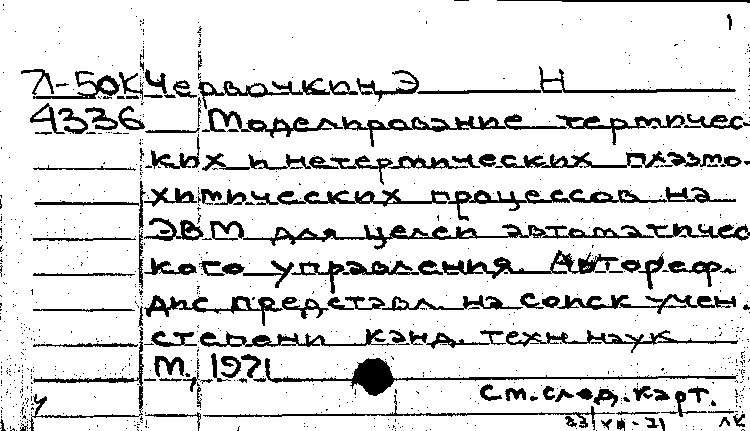 1
71-50К Червочкин, Э Н
4336 Моделирование термичес-
ких и нетермических плазмо-
химических процессов на
ЭВМ для целей автоматичес
кого управления. Автореф.
дис. представл. на соиск учен.
степени канд. техн наук
М., 1971
см. след. карт.